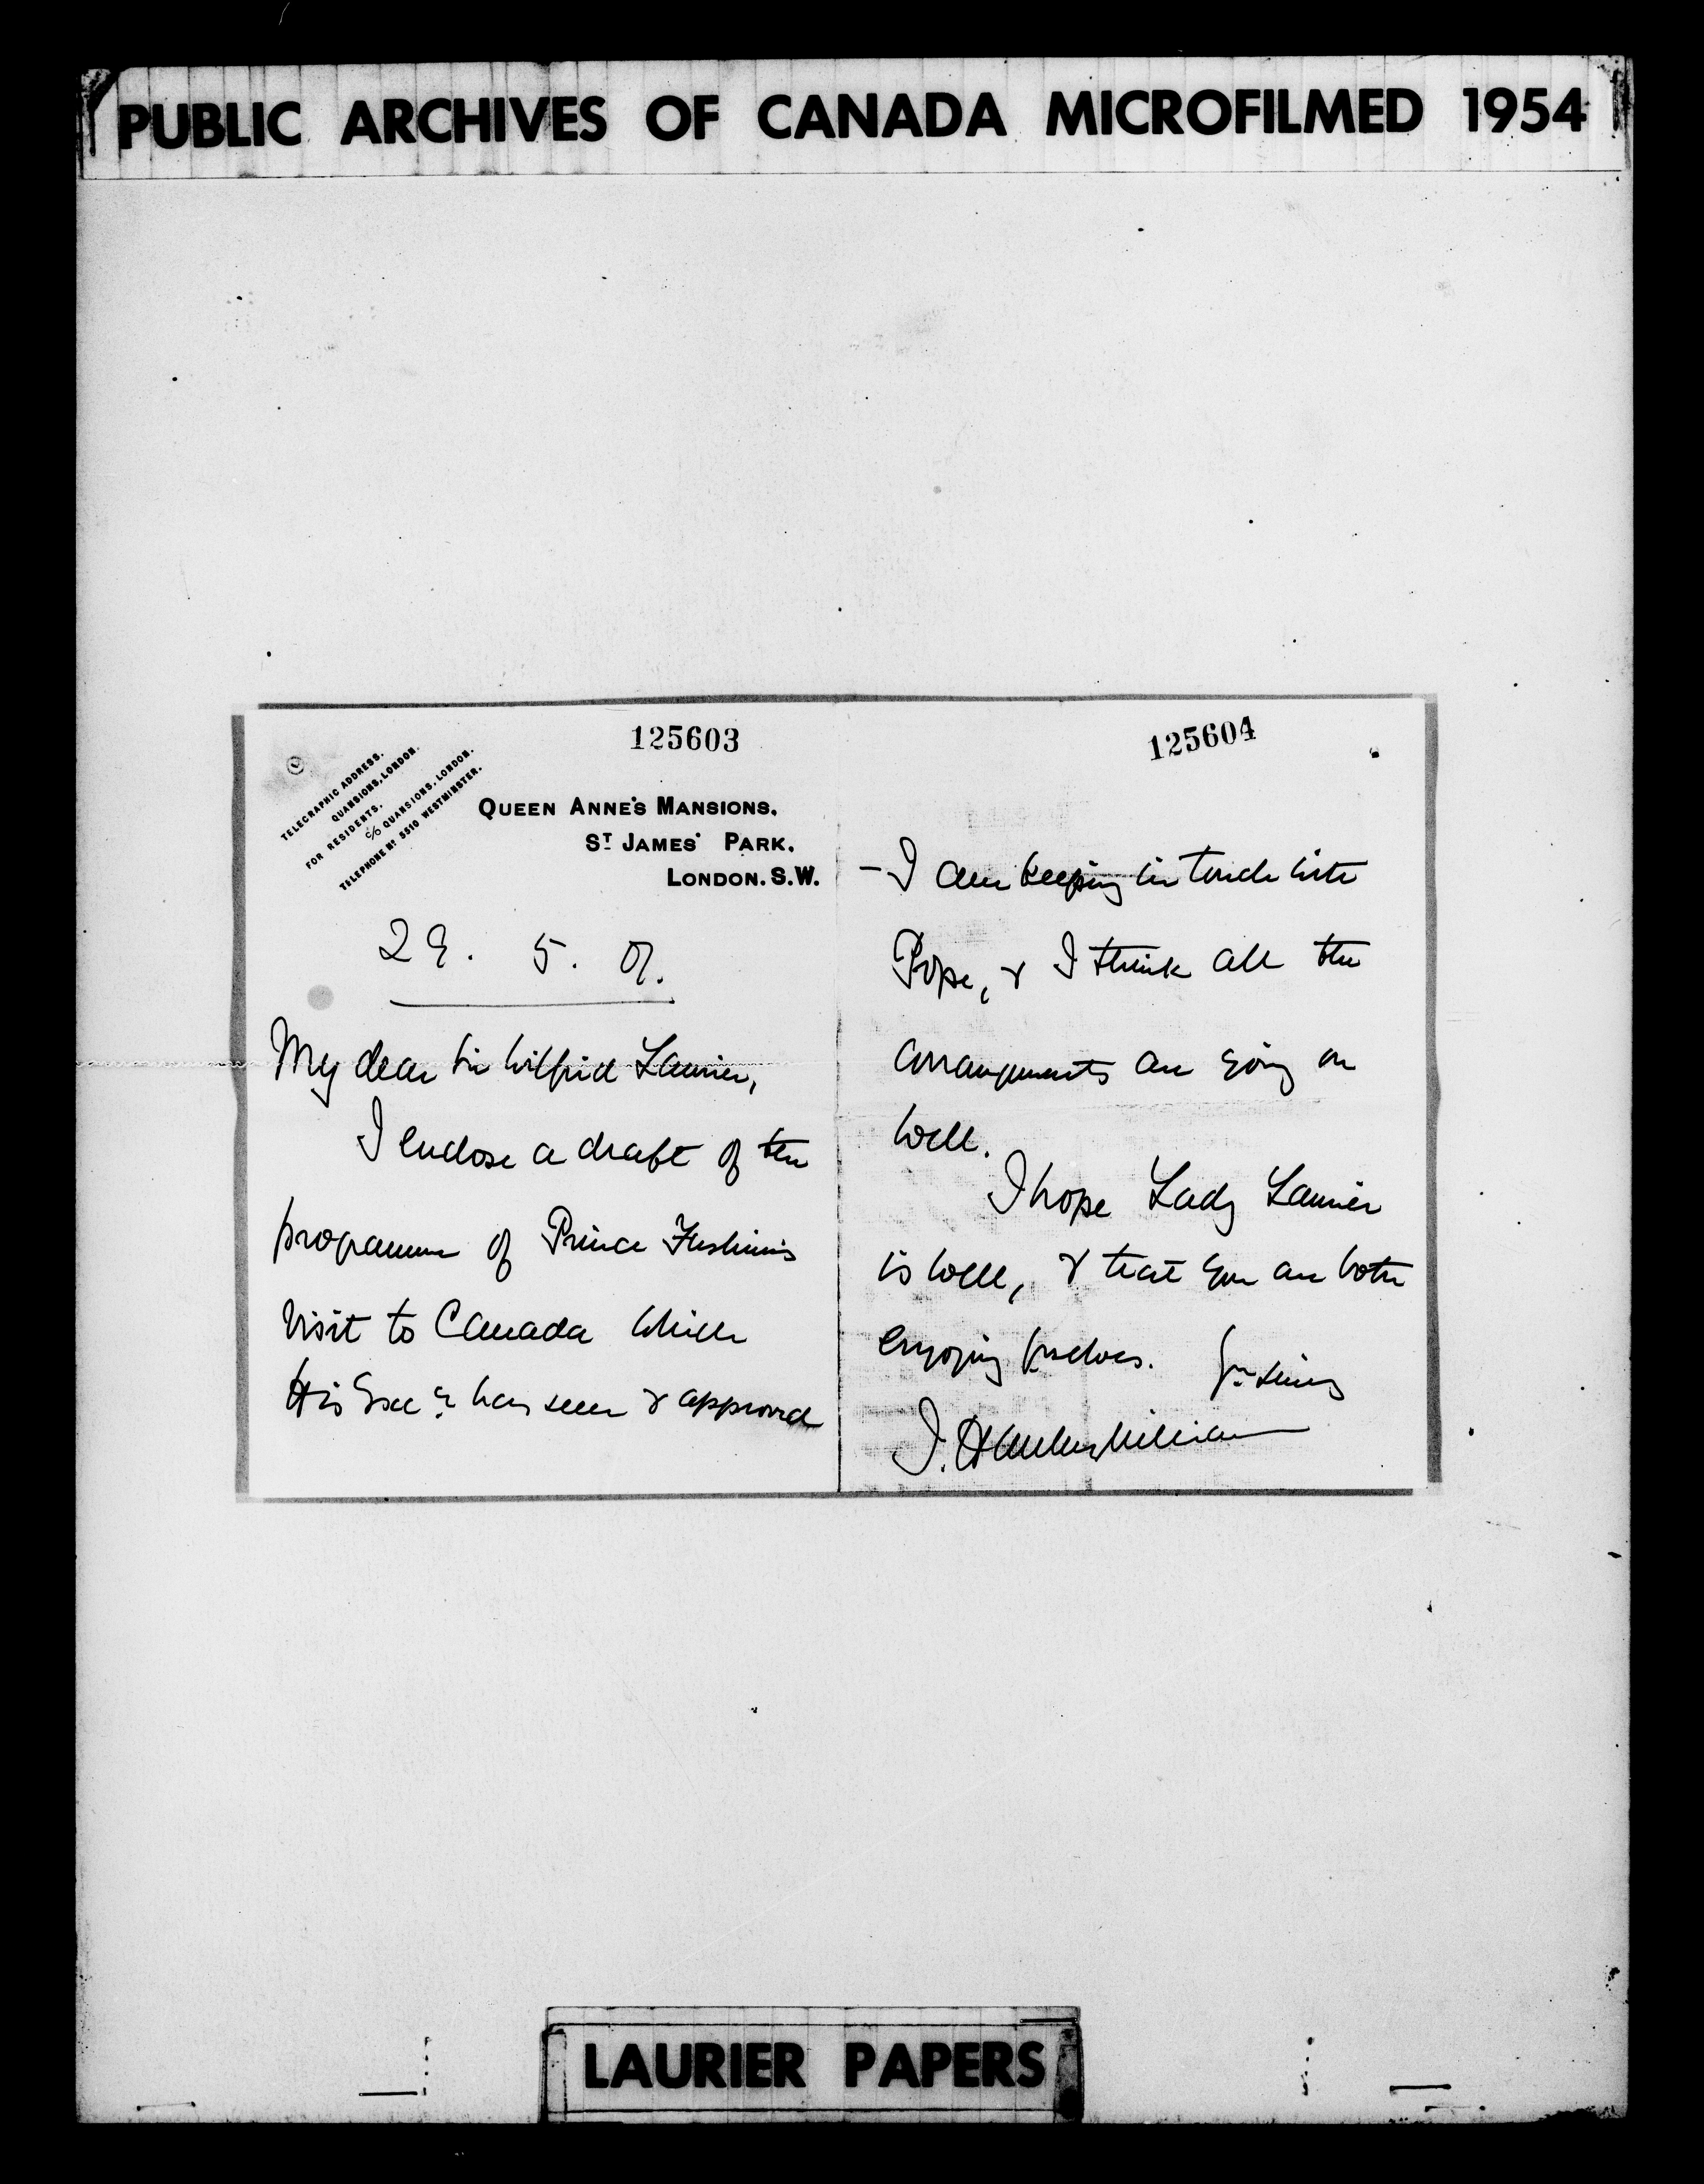 PUBLIC ARCHIVES OF CANADA MICROFILMED 1954
125603
TELEGRAPHIC ADDRESS.
QUANSIONS, LONDON.
FOR RESIDENTS.
C/O QUANSIONS, LONDON.
TELEPHONE Nº 5510 WESTMINSTER.
QUEEN ANNE'S MANSIONS,
ST JAMES' PARK,
LONDON. S.W.
29. 5. 07.
My dear Sir Wilfrid Laurier,
I enclose a draft of the
programme of Prince Fushimi's
visit to Canada which
His Excy has seen & approved
125604
- I am keeping in touch with
Pope, & I think all the
arrangements are going on
well.
I hope Lady Laurier
is well, & that you are both
enjoying yrselves. Yrs sincy
J. Hanbury Williams
LAURIER PAPERS